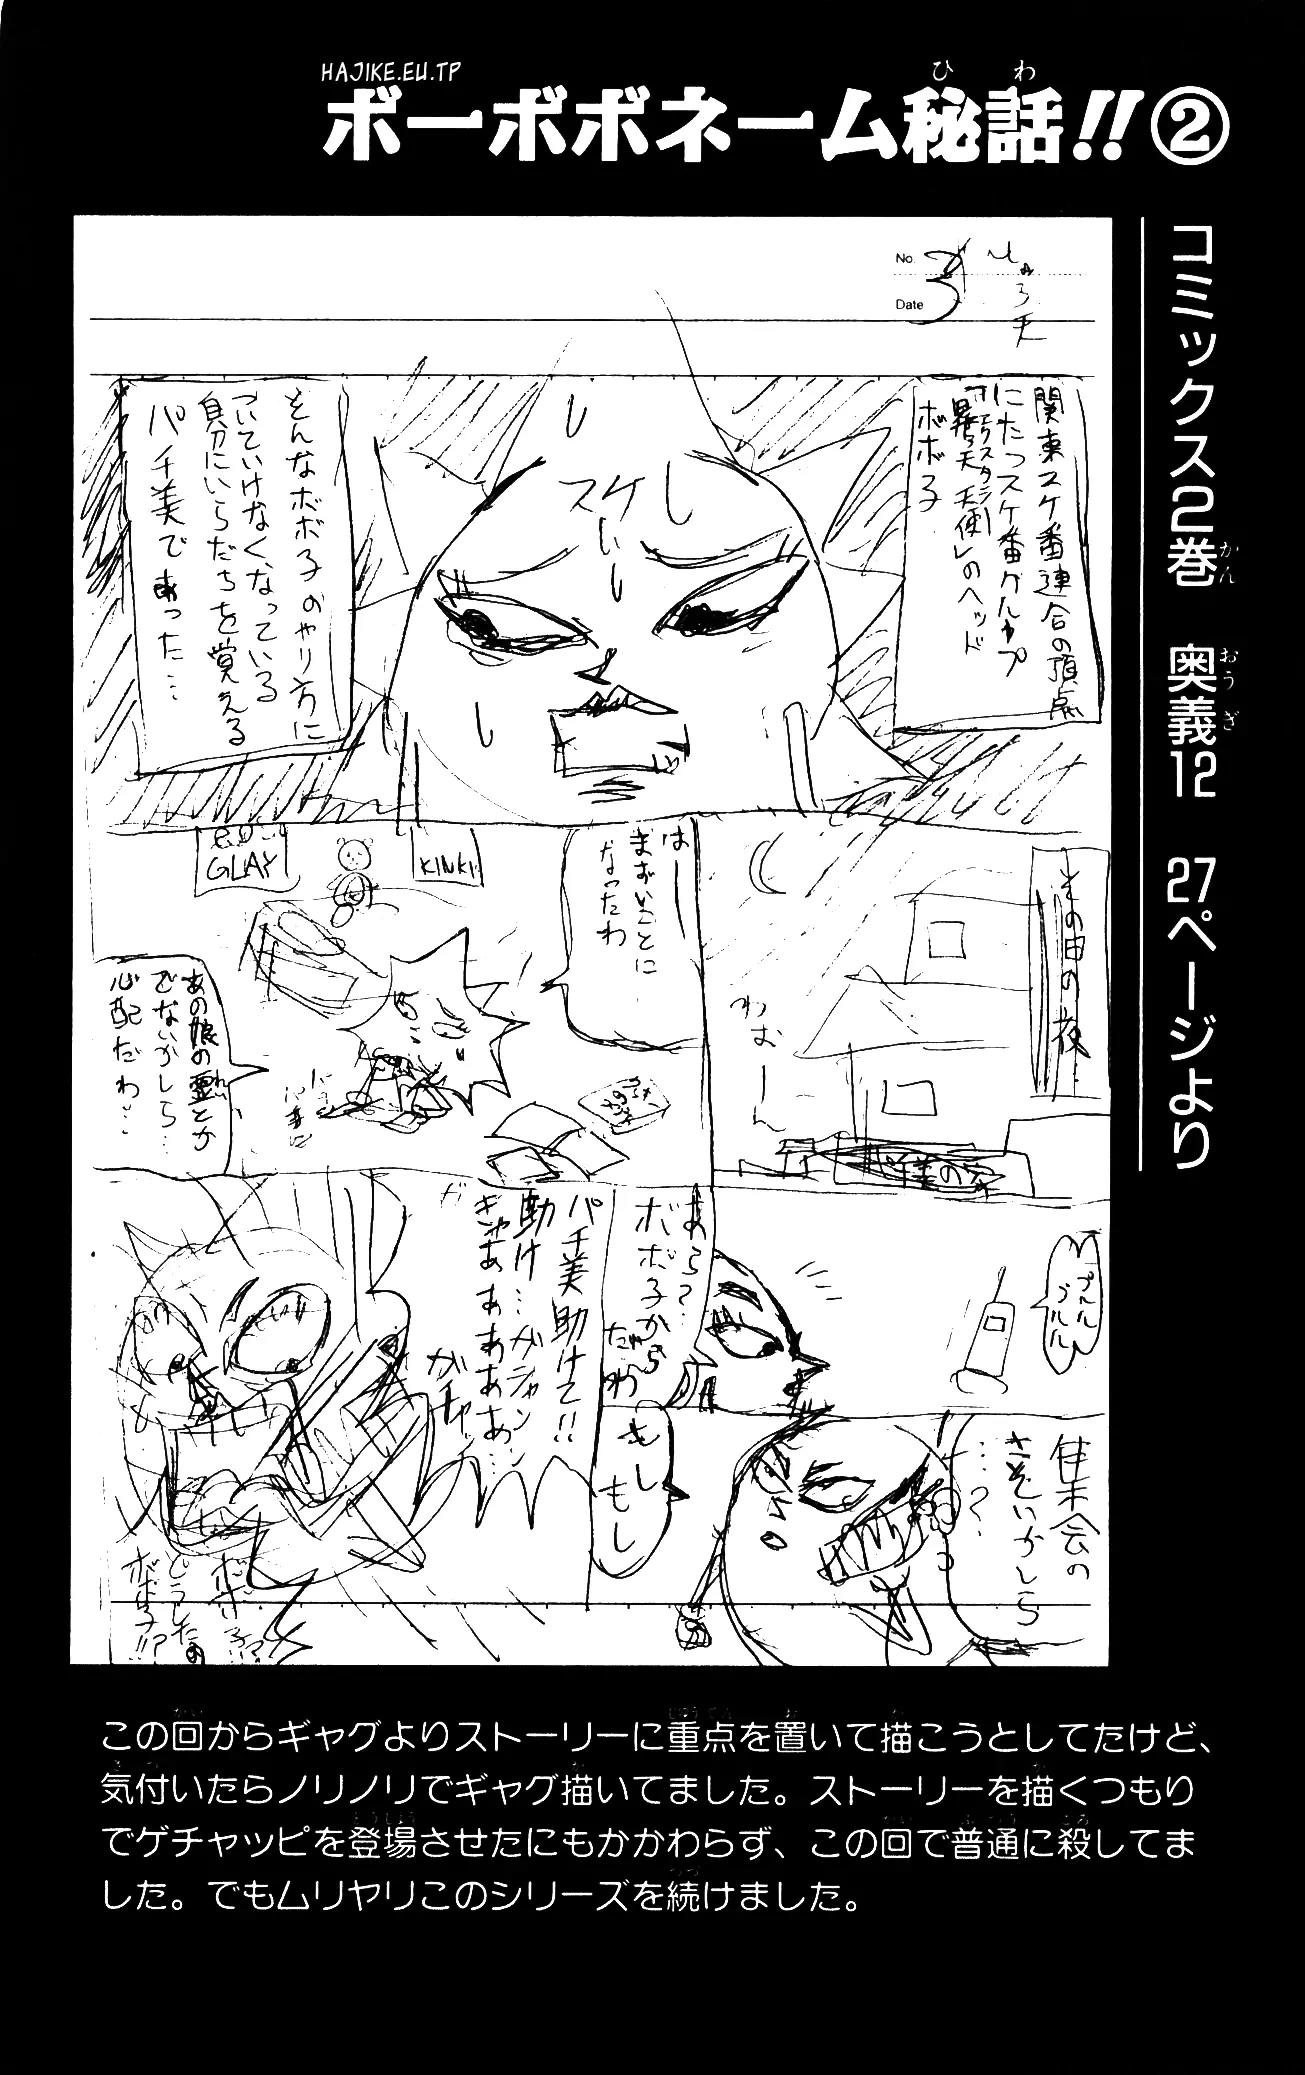 HAJIKE.EU.TP
ボーボボネーム秘話!!②
コミックス2巻 奥義12 27ページより
No.
3
Date
関東スケ番連合の頂点
にたつスケ番グループ
天使」のヘッド
ボボ子
スケ
そんなボボ子のやり方に
ついていけなくなっている
自分にいらだちを覚える
パチ美であった…
その日の夜
わおーん
はー
まずいことに
なったわ
GLAY
KINKI
あの娘の霊とか
でないかしら…
心配だわ…
プルル
プルルル
あら?
ボボ子から
だわ
集会の
さそいかしら
…?
もし
もし
パチ美助けて!!
助け…ガシャン…
ぎゃああああああ…
ガチャ
どうしたの
ボボ子!!?
この回からギャグよりストーリーに重点を置いて描こうとしてたけど、
気付いたらノリノリでギャグ描いてました。ストーリーを描くつもり
でゲチャッピを登場させたにもかかわらず、この回で普通に殺してま
した。でもムリヤリこのシリーズを続けました。